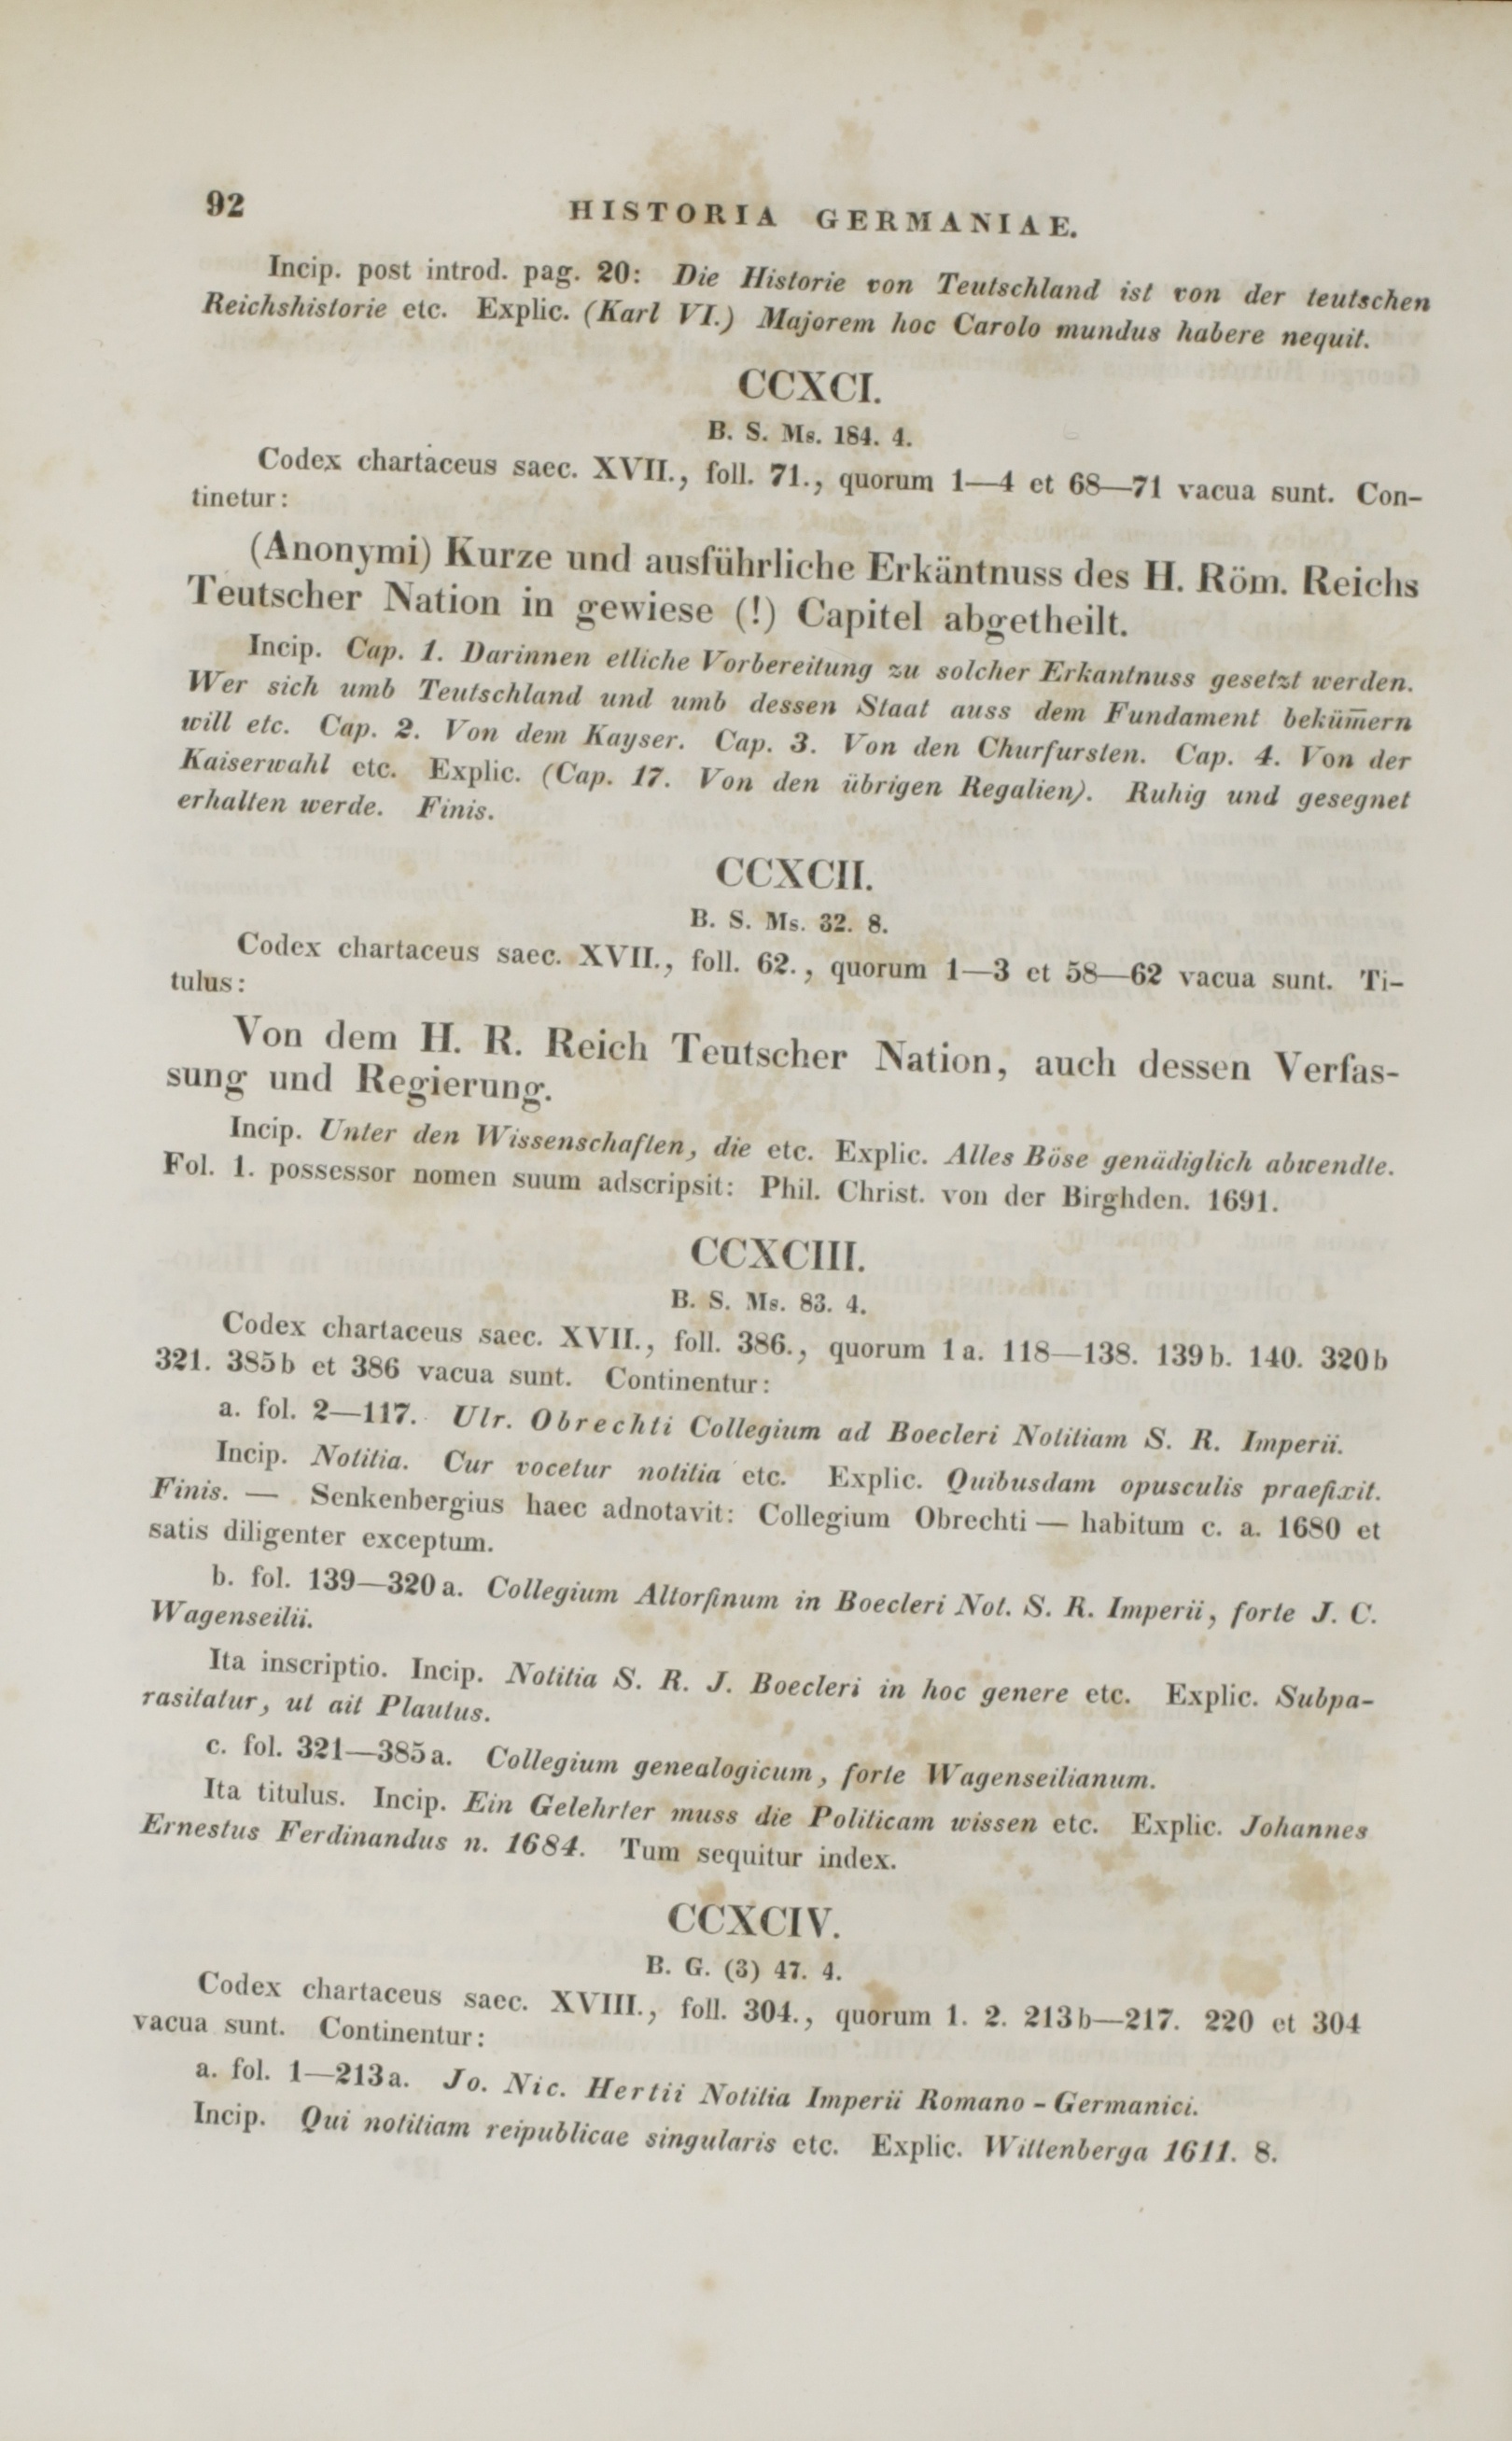 92
HISTORIA GERMANIAE.
Incip. post introd. pag. 20: Die Historie von Teutschland ist von der teutschen
Reichshistorie etc. Explic. (Karl VI.) Majorem hoc Carolo mundus habere nequit.
CCXCI.
B. S. Ms. 184. 4.
Codex chartaceus saec. XVII., foll. 71., quorum 1—4 et 68—71 vacua sunt. Con-
tinetur:
(Anonymi) Kurze und ausführliche Erkäntnuss des H. Röm. Reichs
Teutscher Nation in gewiese (!) Capitel abgetheilt.
Incip. Cap. 1. Darinnen etliche Vorbereitung zu solcher Erkantnuss gesetzt werden.
Wer sich umb Teutschland und umb dessen Staat auss dem Fundament beküm̄ern
will etc. Cap. 2. Von dem Kayser. Cap. 3. Von den Churfursten. Cap. 4. Von der
Kaiserwahl etc. Explic. (Cap. 17. Von den übrigen Regalien). Ruhig und gesegnet
erhalten werde. Finis.
CCXCII.
B. S. Ms. 32. 8.
Codex chartaceus saec. XVII., foll. 62., quorum 1—3 et 58—62 vacua sunt. Ti-
tulus:
Von dem H. R. Reich Teutscher Nation, auch dessen Verfas-
sung und Regierung.
Incip. Unter den Wissenschaften, die etc. Explic. Alles Böse genädiglich abwendte.
Fol. 1. possessor nomen suum adscripsit: Phil. Christ. von der Birghden. 1691.
CCXCIII.
B. S. Ms. 83. 4.
Codex chartaceus saec. XVII., foll. 386., quorum 1a. 118—138. 139b. 140. 320b
321. 385b et 386 vacua sunt. Continentur:
a. fol. 2—117. Ulr. Obrechti Collegium ad Boecleri Notitiam S. R. Imperii.
Incip. Notitia. Cur vocetur notitia etc. Explic. Quibusdam opusculis praefixit.
Finis. — Senkenbergius haec adnotavit: Collegium Obrechti — habitum c. a. 1680 et
satis diligenter exceptum.
b. fol. 139—320a. Collegium Altorfinum in Boecleri Not. S. R. Imperii, forte J. C.
Wagenseilii.
Ita inscriptio. Incip. Notitia S. R. J. Boecleri in hoc genere etc. Explic. Subpa-
rasitatur, ut ait Plautus.
c. fol. 321—385a. Collegium genealogicum, forte Wagenseilianum.
Ita titulus. Incip. Ein Gelehrter muss die Politicam wissen etc. Explic. Johannes
Ernestus Ferdinandus n. 1684. Tum sequitur index.
CCXCIV.
B. G. (3) 47. 4.
Codex chartaceus saec. XVIII., foll. 304., quorum 1. 2. 213b—217. 220 et 304
vacua sunt. Continentur:
a. fol. 1—213a. Jo. Nic. Hertii Notitia Imperii Romano-Germanici.
Incip. Qui notitiam reipublicae singularis etc. Explic. Wittenberga 1611. 8.